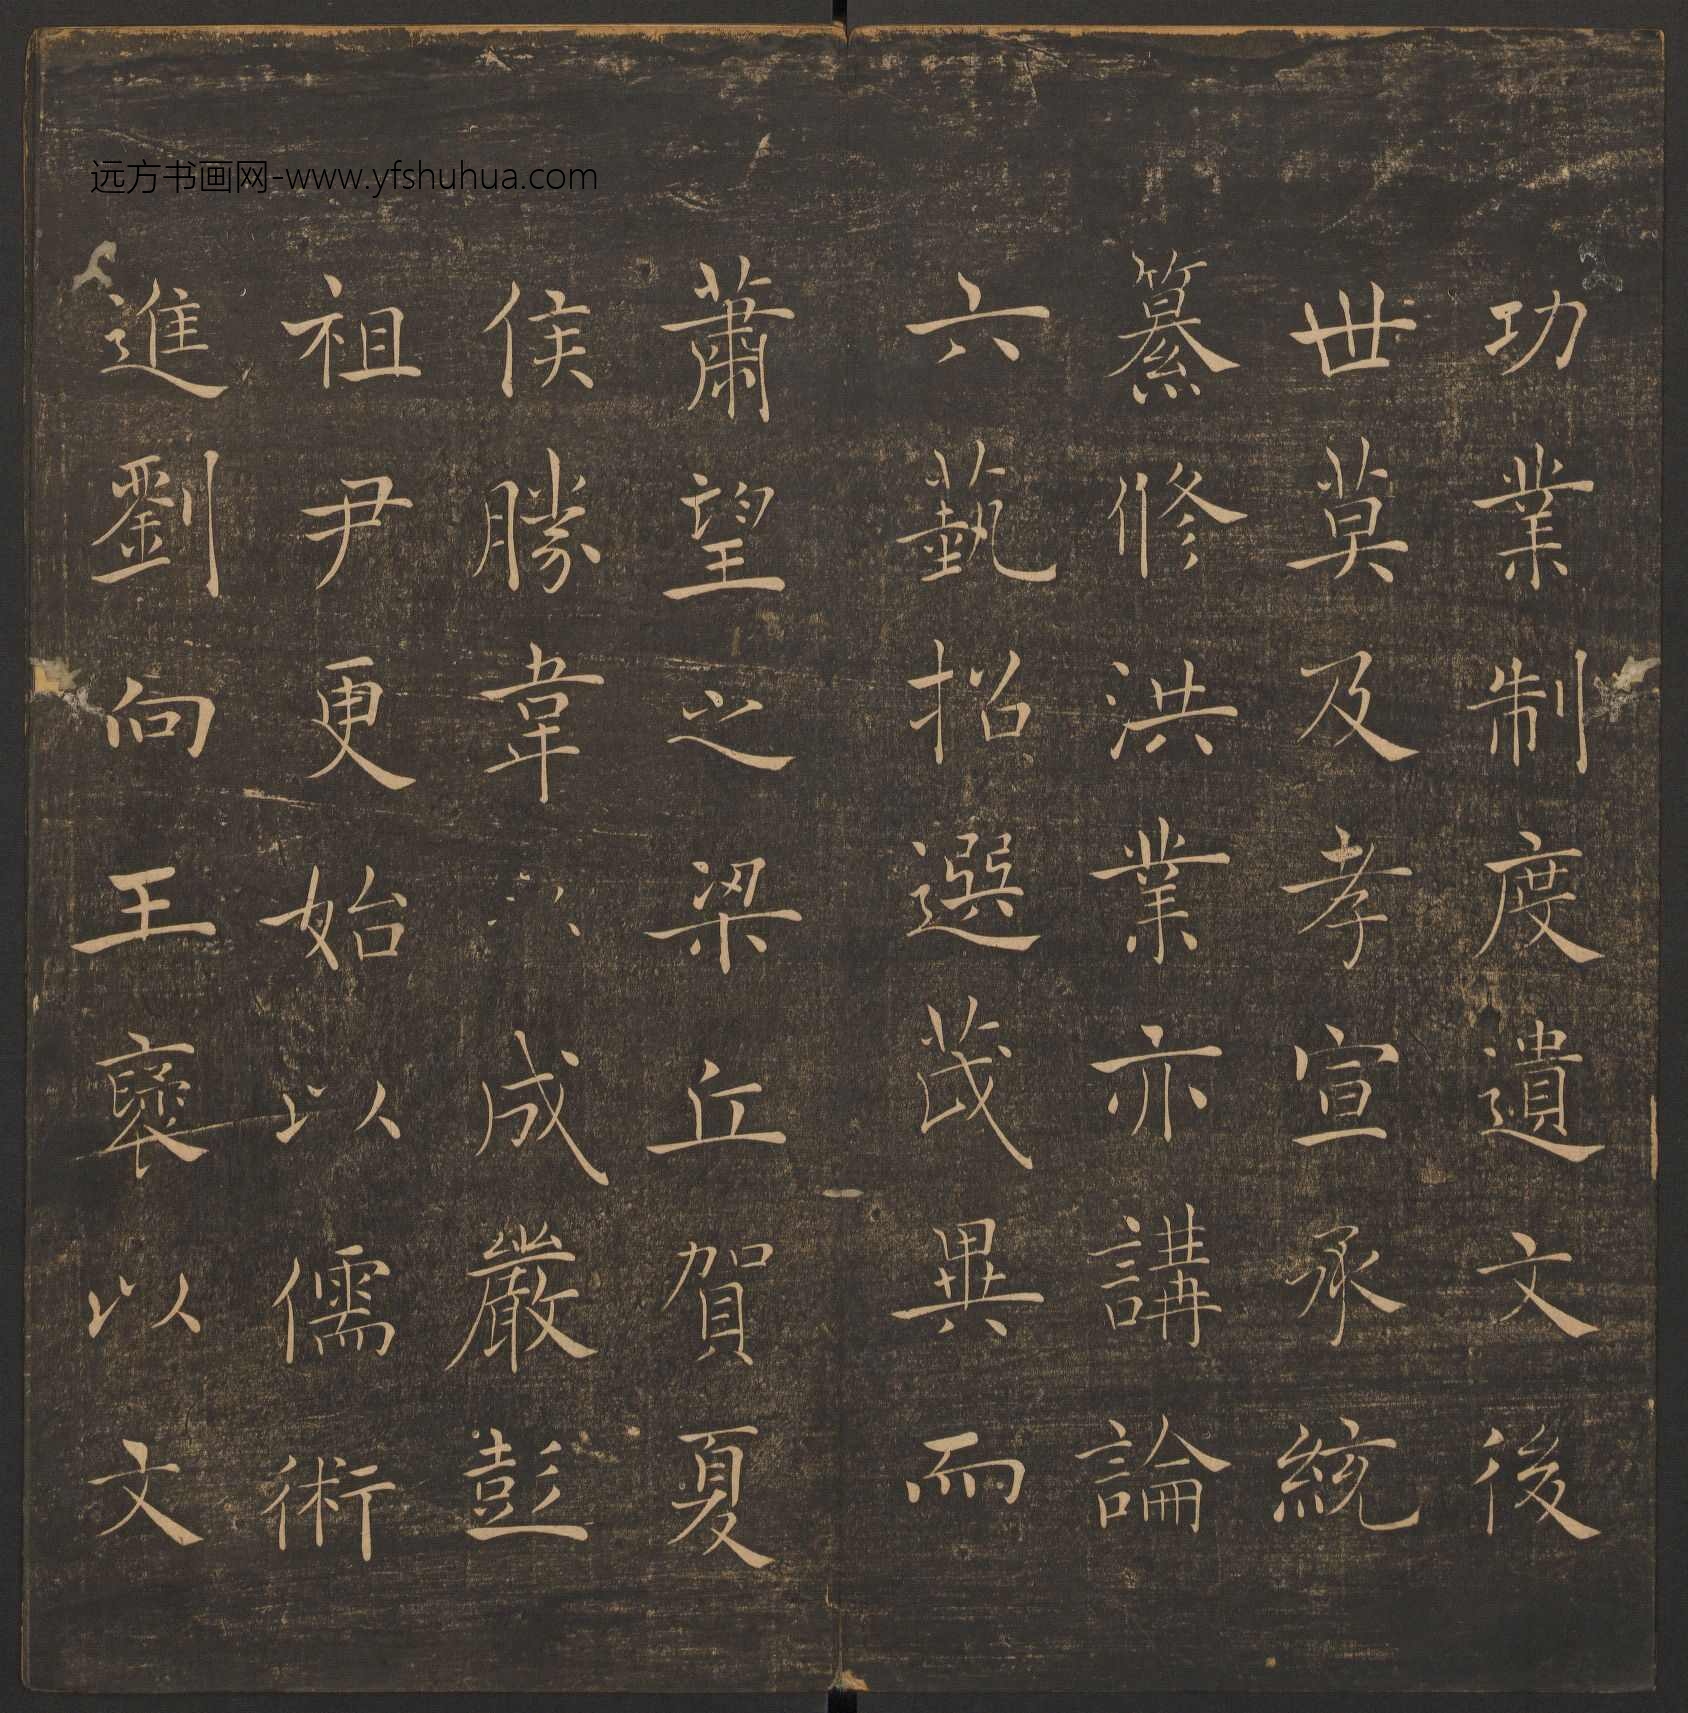 远方书画网-www.yfshuhua.com
功業制度遺文後
世莫及孝宣承統
纂修洪業亦講論
六藝招選茂異而
蕭望之梁丘賀夏
侯勝韋成嚴彭
祖尹更始以儒術
進劉向王襃以文